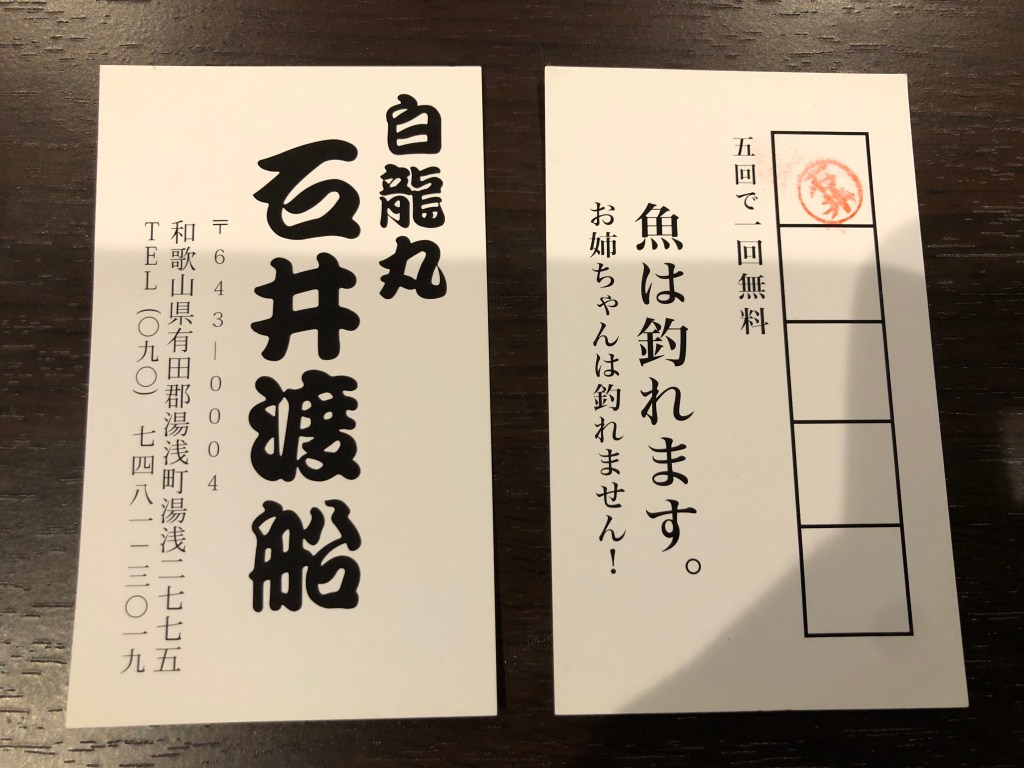 白龍丸
石井渡船
〒643―0004
和歌山県有田郡湯浅町湯浅二七七五
TEL（〇九〇）七四八一―三〇一九
石井
五回で一回無料
魚は釣れます。
お姉ちゃんは釣れません！